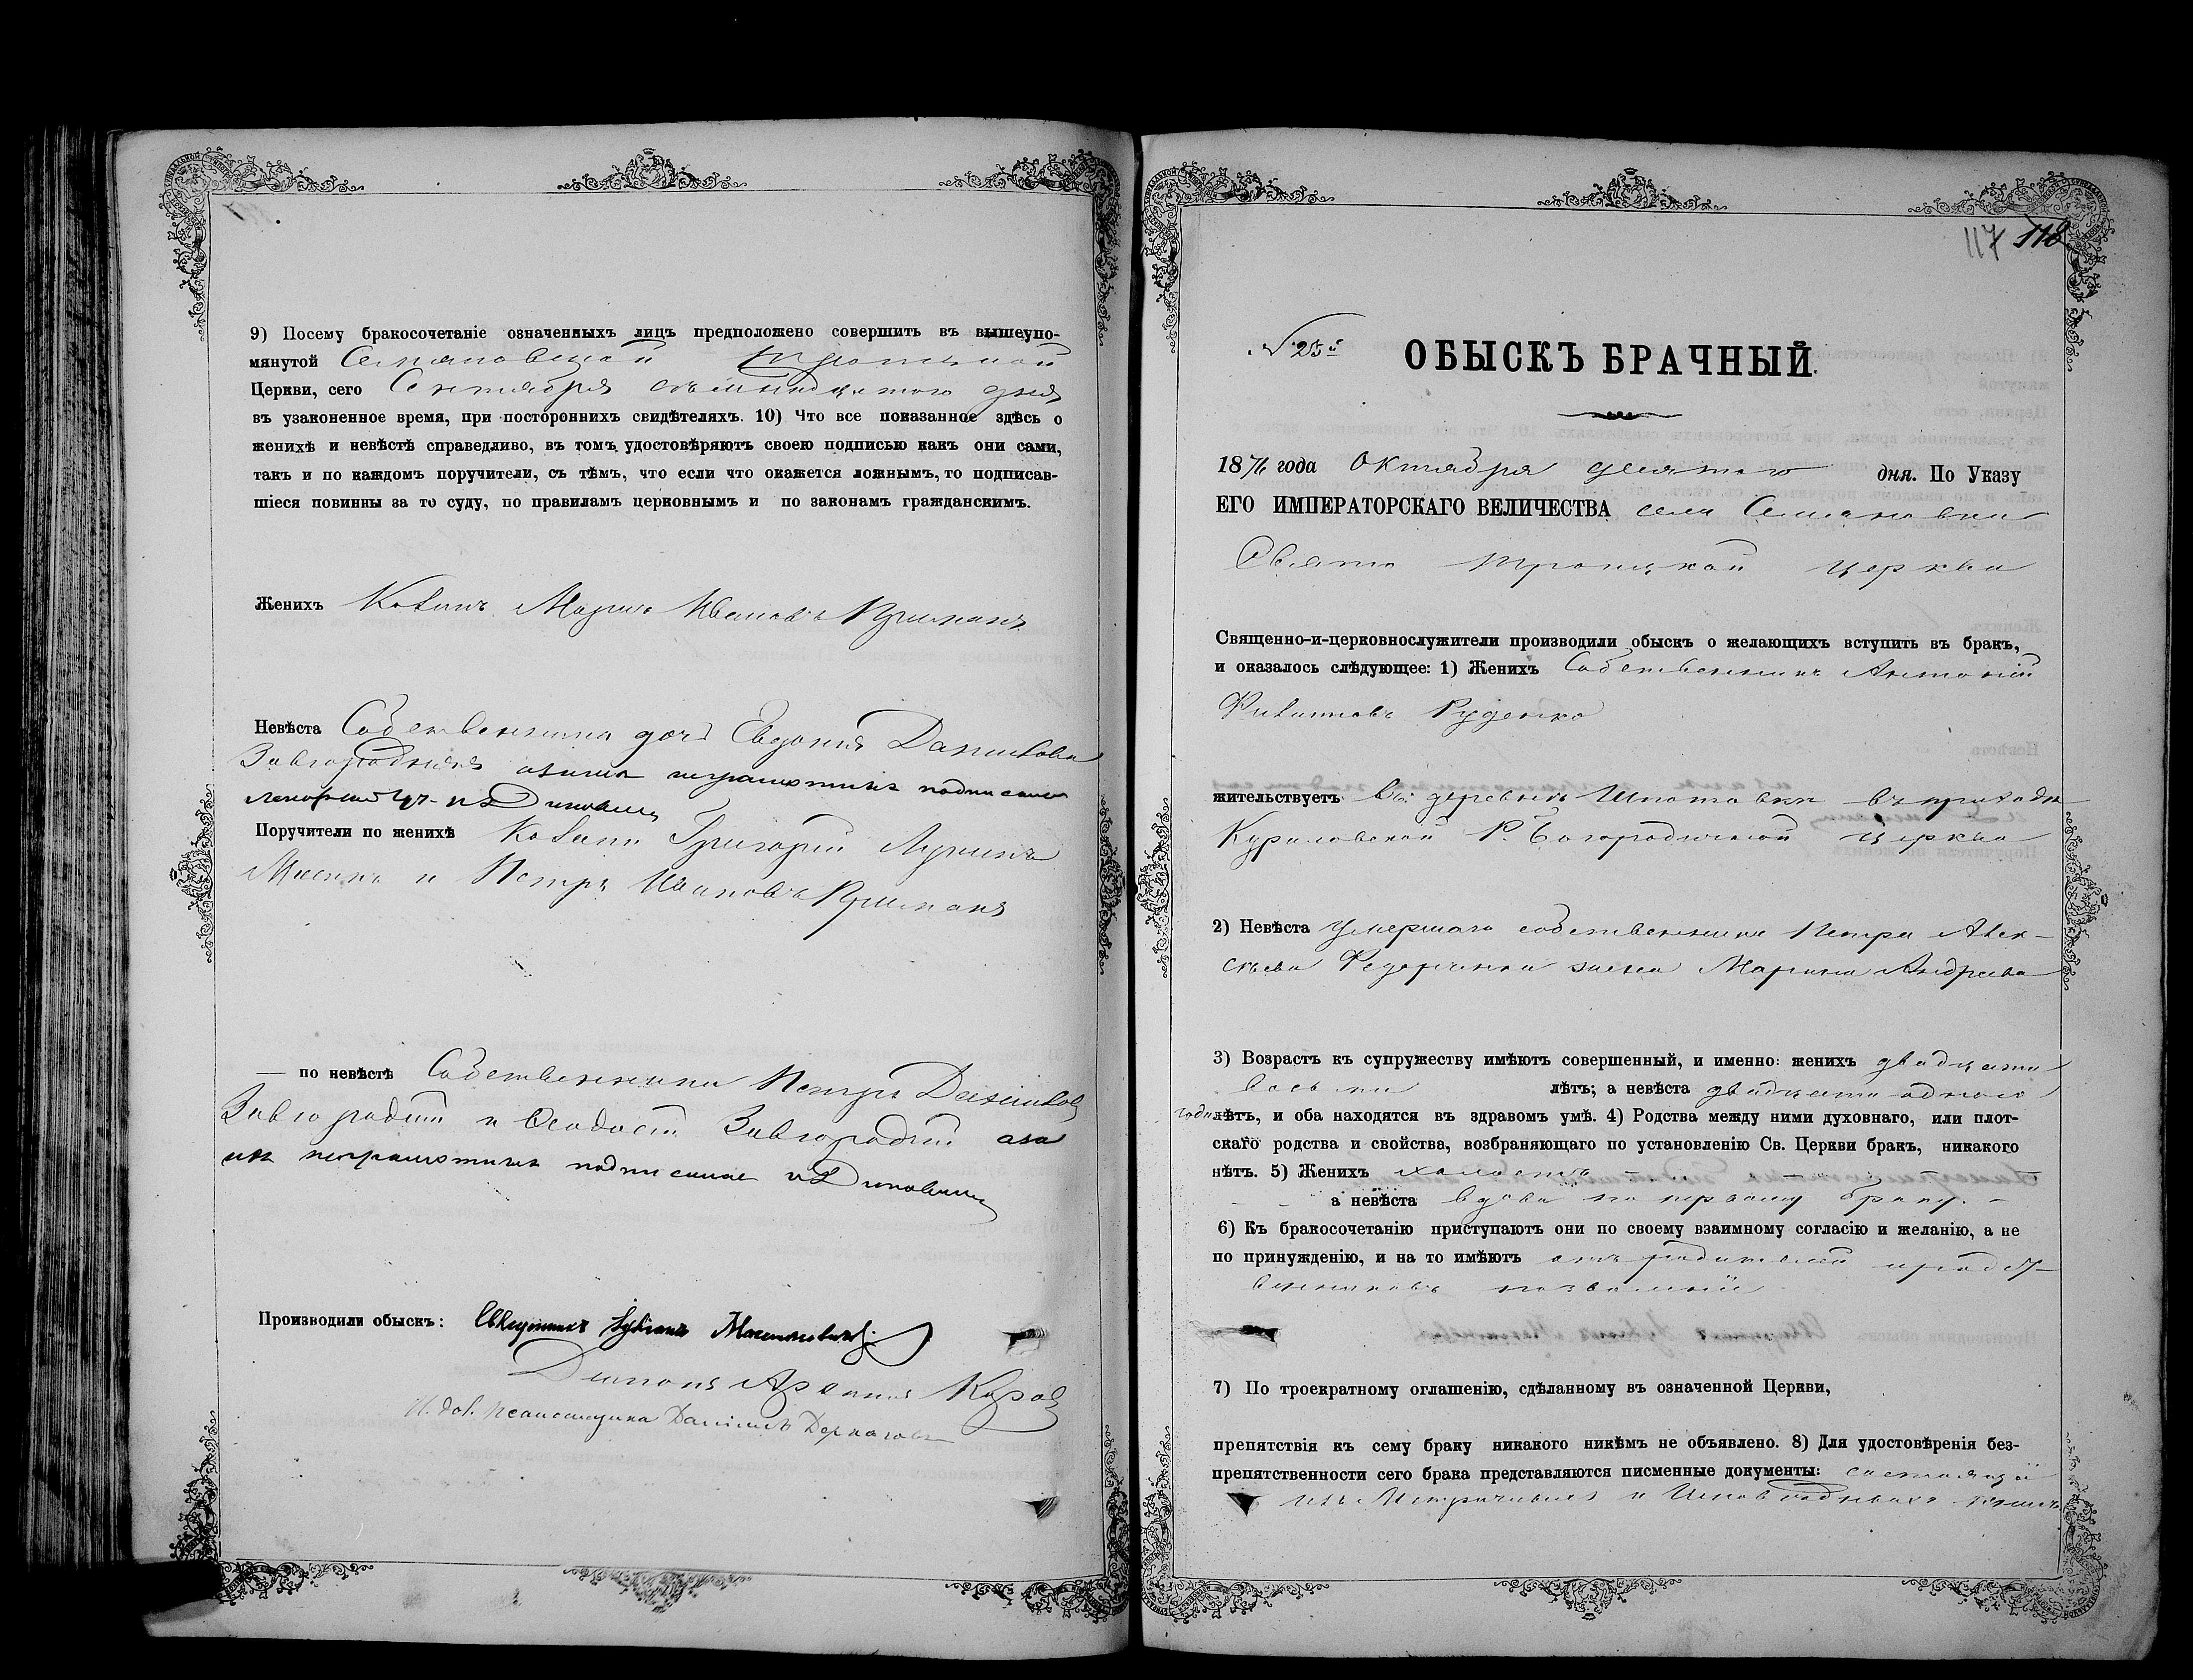 9) Посему бракосочетаніе означенныхъ лицъ предположено совершить въ вышеупо-
мянутой Семяновской Троицкой
Церкви, сего Сентября дня
въ узаконенное время, при постороннихъ свидѣтеляхъ. 10) Что все показанное здѣсь о
женихѣ и невѣстѣ справедливо, въ томъ удостовѣряютъ своею подписью какъ они сами,
такъ и по каждомъ поручители, съ тѣмъ, что если что окажется ложнымъ, то подписав-
шіеся повинны за то суду, по правиламъ церковнымъ и по законамъ гражданскимъ.
Женихъ Козакъ Иванов
Невѣста Собственника дочь Евдокія Данилова
Завгородняя
Поручители по женихѣ Козаки Григорій
и Петръ Ивановъ
— по невѣстѣ Собственники Петръ
Завгородній и Ѳеодосій Завгородній
Производили обыскъ: Священникъ
Дьяконъ
Псаломщика Даніилъ
117 118
№ 25й
ОБЫСКЪ БРАЧНЫЙ.
1876 года Октября десятого дня. По Указу
ЕГО ИМПЕРАТОРСКАГО ВЕЛИЧЕСТВА села
Свято Троицкой церкви
Священно-и-церковнослужители производили обыскъ о желающихъ вступить въ бракъ,
и оказалось слѣдующее: 1) Женихъ Собственникъ Антоній
Филиповъ Руденко
жительствуетъ въ деревнѣ въ приходѣ
Куриловской Р. Богородичной церкви
2) Невѣста Умершаго собственника Петра Алек-
сѣева Федорченка жена Марина Андреева
3) Возрастъ къ супружеству имѣютъ совершенный, и именно: женихъ двадцати
восьми лѣтъ; а невѣста двадцати одного
года лѣтъ, и оба находятся въ здравомъ умѣ. 4) Родства между ними духовнаго, или плот-
скаго родства и свойства, возбраняющаго по установленію Св. Церкви бракъ, никакого
нѣтъ. 5) Женихъ холостъ
а невѣста вдова по первому браку.
6) Къ бракосочетанію приступаютъ они по своему взаимному согласію и желанію, а не
по принужденію, и на то имѣютъ отъ родителей и родст-
венниковъ
7) По троекратному оглашенію, сдѣланному въ означенной Церкви,
препятствія къ сему браку никакого никѣмъ не объявлено. 8) Для удостовѣренія без-
препятственности сего брака представляются писменные документы:
изъ Метрическихъ и Исповѣдныхъ книгъ